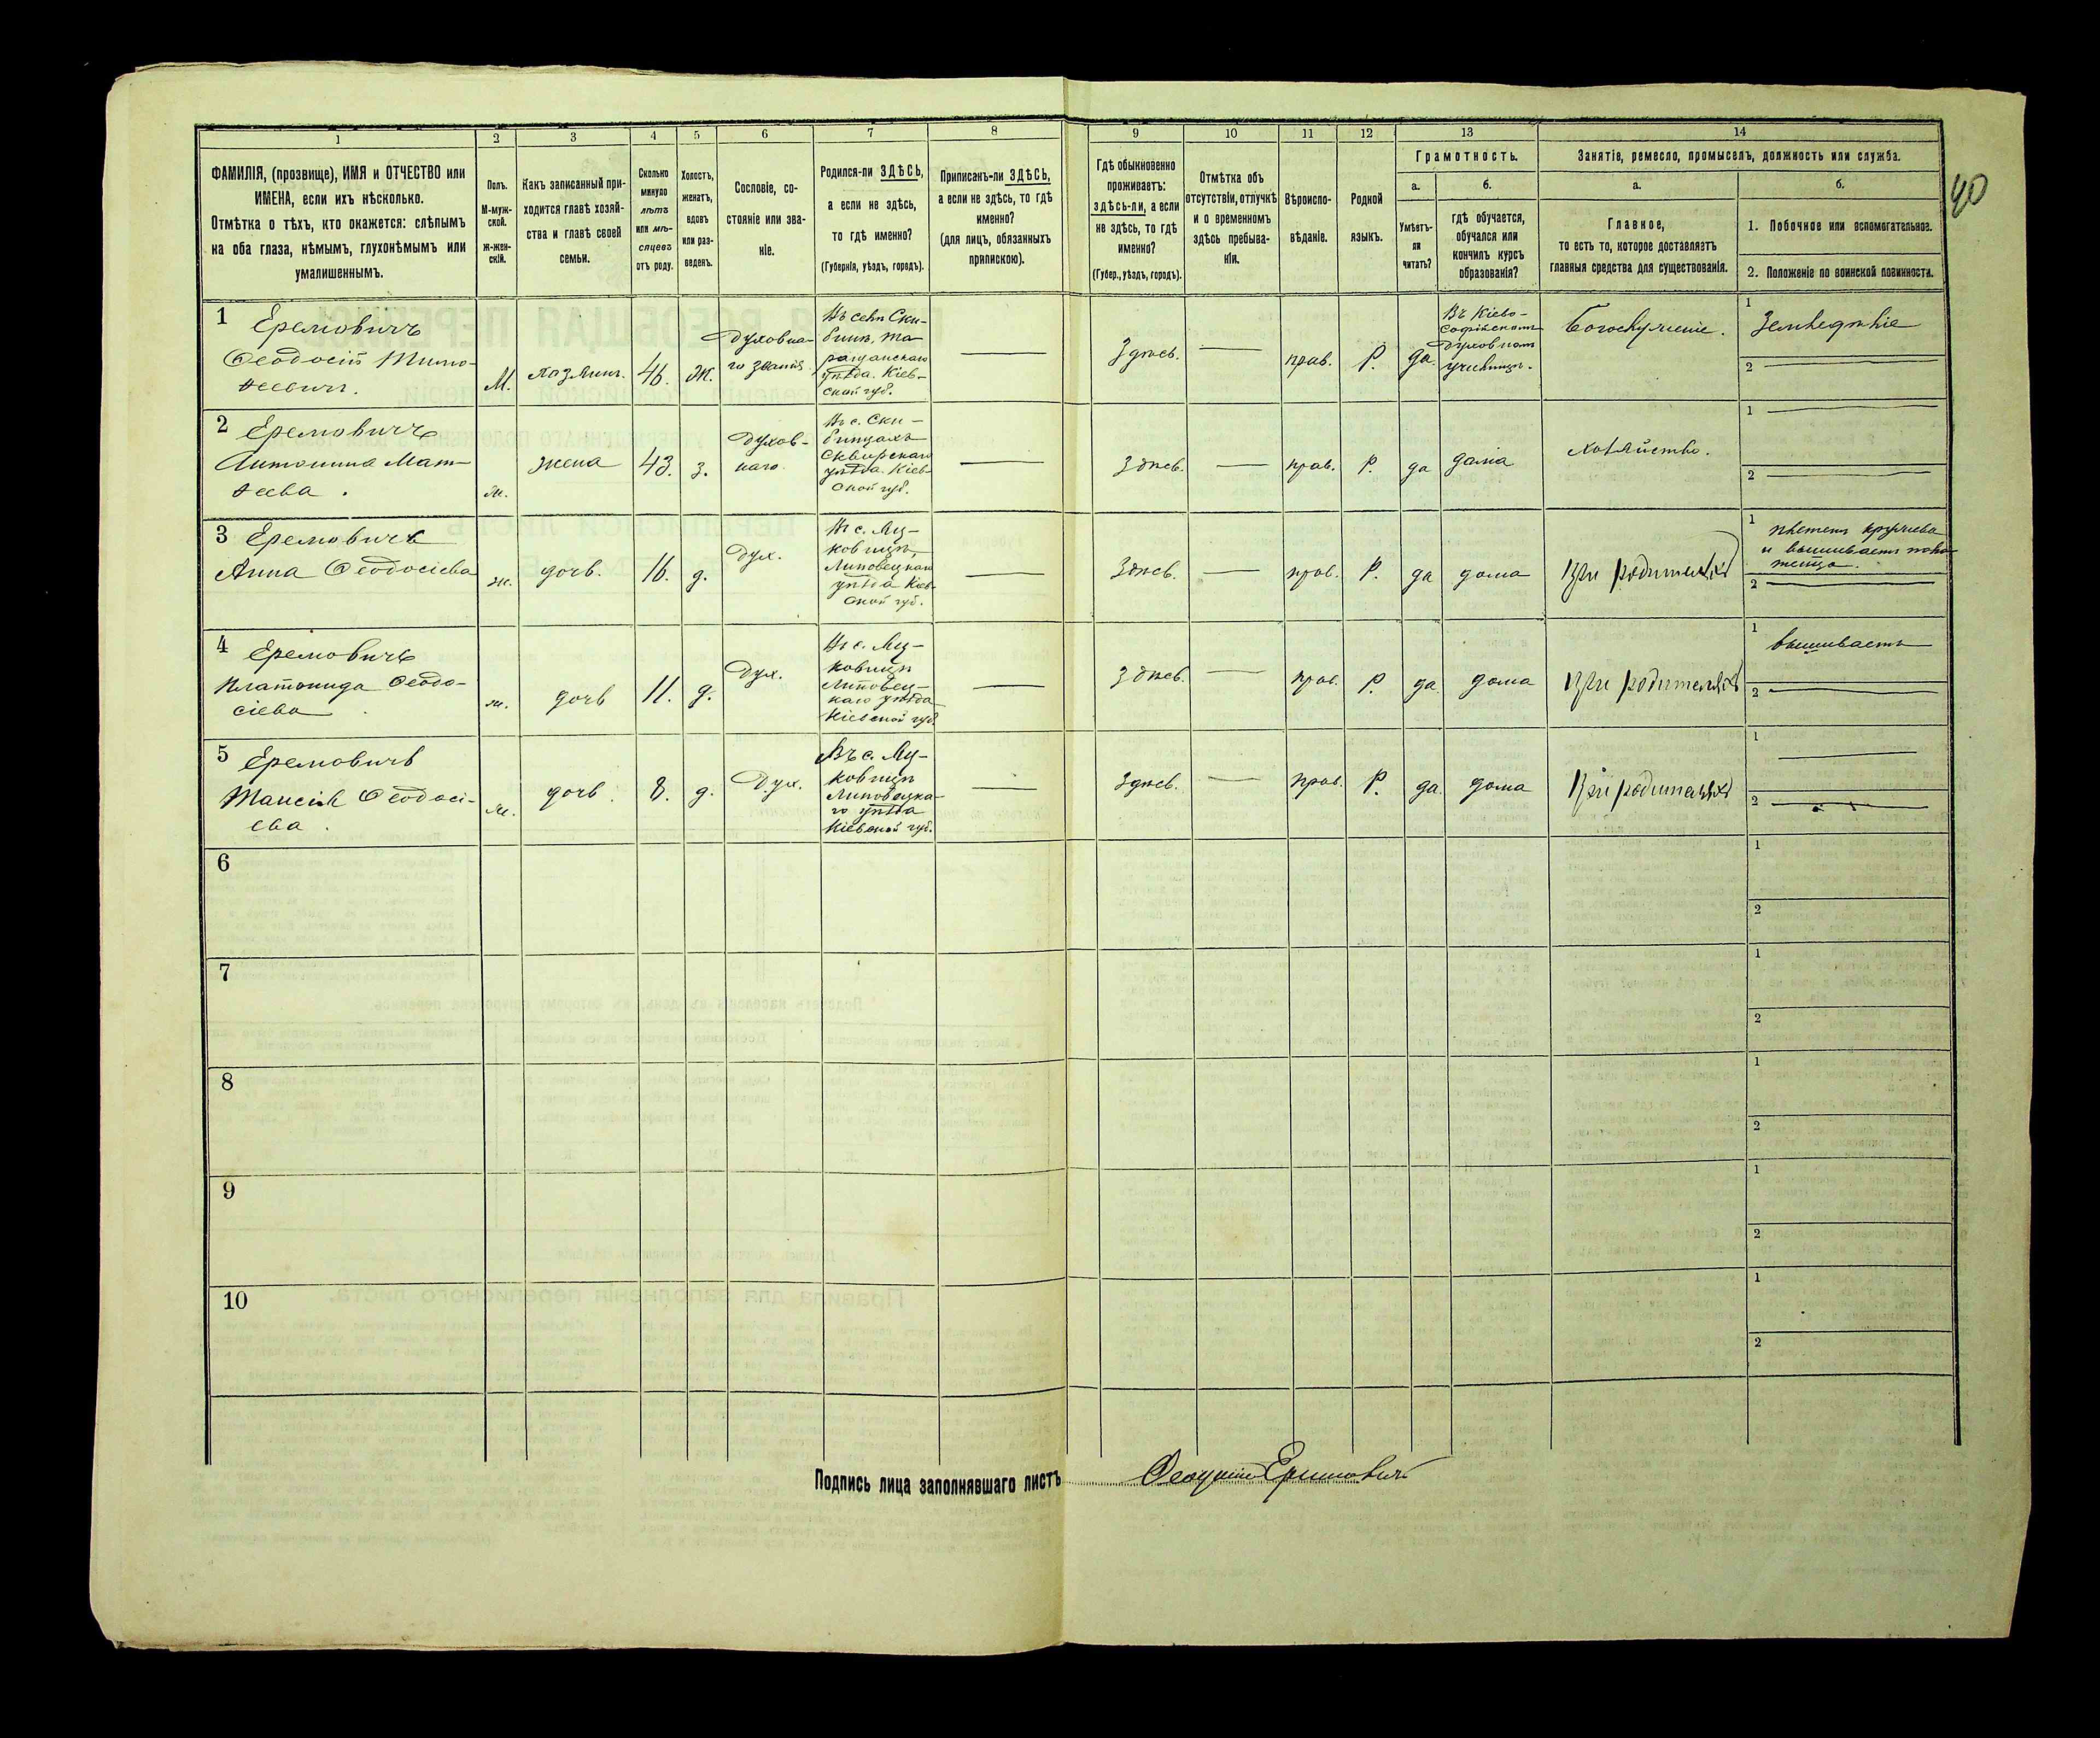 1 2 3 4 5 6 7 8 9 10 11 12 13 14
ФАМИЛІЯ, (прозвище), ИМЯ и ОТЧЕСТВО или
ИМЕНА, если ихъ нѣсколько.
Отмѣтка о тѣхъ, кто окажется: слѣпымъ
на оба глаза, нѣмымъ, глухонѣмымъ или
умалишеннымъ.
Полъ.
М-муж-
ской.
Ж-жен-
скій.
Какъ записанный при-
ходится главѣ хозяй-
ства и главѣ своей
семьи.
Сколько
минуло
лѣтъ
или мѣ-
сяцевъ
отъ роду.
Холостъ,
женатъ,
вдовъ
или раз-
веденъ.
Сословіе, со-
стояніе или зва-
ніе.
Родился-ли ЗДѢСЬ,
а если не здѣсь,
то гдѣ именно?
(Губернія, уѣздъ, городъ).
Приписанъ-ли ЗДѢСЬ,
а если не здѣсь, то гдѣ
именно?
(для лицъ, обязанныхъ
припискою).
Гдѣ обыкновенно
проживаетъ:
здѣсь-ли, а если
не здѣсь, то гдѣ
именно?
(Губер., уѣздъ, городъ).
Отмѣтка объ
отсутствіи, отлучкѣ
и о временномъ
здѣсь пребыва-
ніи.
Вѣроиспо-
вѣданіе.
Родной
языкъ.
Грамотность.
а.
Умѣетъ-
ли
читать?
б.
гдѣ обучается,
обучался или
кончилъ курсъ
образованія?
Занятіе, ремесло, промыселъ, должность или служба.
а.
Главное,
то есть то, которое доставляетъ
главныя средства для существованія.
б.
1. Побочное или вспомогательное.
2. Положеніе по воинской повинности.
40
1 Еремовичъ
Ѳеодосій Тимо-
ѳеевич.
М.
хозяин.
46.
Ж.
Духовна-
го званія.
Въ селѣ Ски-
бинѣ, Та
ращанскаго
уѣзда. Кіев-
ской губ.
Здѣсь.
прав.
Р.
да.
Въ Кіево-
Софійскомъ
Духовномъ
училищѣ.
Богослуженіе.
1
Земледѣліе
2
2 Еремовичъ
Антонина Мат-
ѳеева.
ж.
жена
43.
з.
Духов-
наго.
Въ с. Ски-
бинцахъ
Сквирскаго
уѣзда. Кіев-
ской губ.
Здѣсь.
прав.
Р.
да
дома
хозяйство.
1
2
3 Еремовичъ
Анна Ѳеодосіева
ж.
дочь.
16.
д.
Дух.
Въ с. Лу-
ковицѣ,
Липовецкаго
уѣзда Кіев-
ской губ.
Здѣсь.
прав.
Р.
да
дома
При родителяхъ
1
плететъ кружева
и вышиваетъ поло-
тенца.
2
4 Еремовичъ
Платонида Ѳеодо-
сіева
ж.
дочь
11.
д.
Дух.
Въ с. Лу-
ковицѣ
Липовец-
каго уѣзда
Кіевской губ.
Здѣсь.
прав.
Р.
да
дома
При родителяхъ
1
вышиваетъ
2
5 Еремовичъ
Ѳеодосі-
ева.
ж.
дочь
8.
д.
Дух.
Въ с. Лу-
ковицѣ
Липовецка-
го уѣзда
Кіевской губ.
Здѣсь.
прав.
Р.
да
дома
При родителяхъ
1
2
6
1
2
7
1
2
8
1
2
9
1
2
10
1
2
Подпись лица заполнявшаго листъ Ѳеодосій Еремовичъ